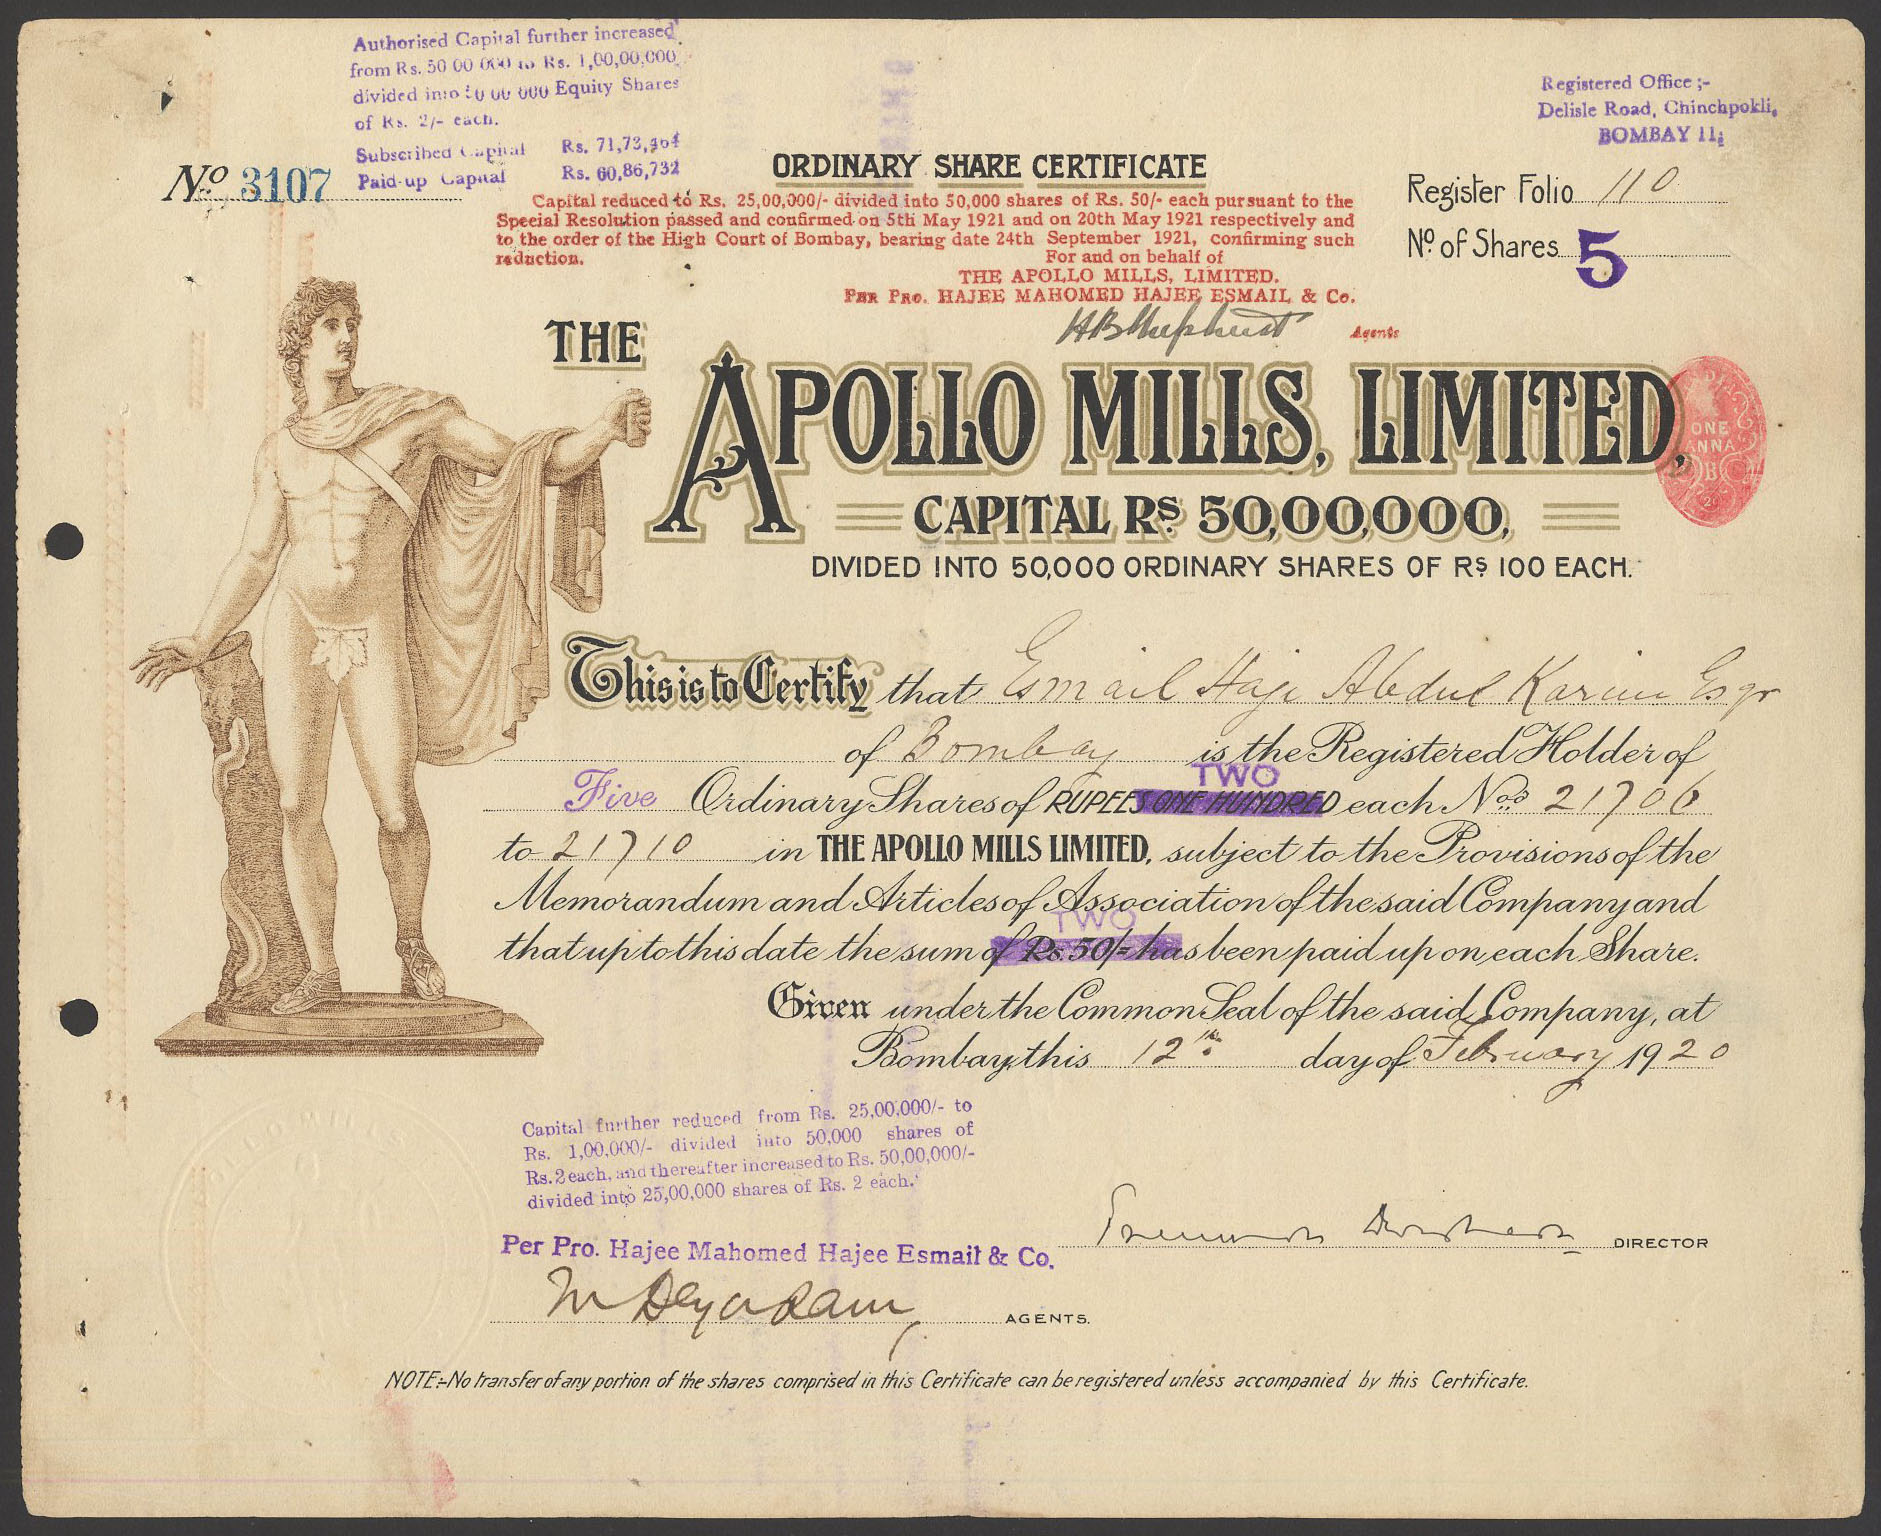 Authorised Capital further increased
from Rs. 50 00 000 to Rs. 1,00,00,000
divided into 50 00 000 Equity Shares
of Rs. 2/- each.
Subscribed Capital Rs. 71,73,464
Paid-up Capital Rs. 60,86,732
Registered Office ;-
Delisle Road, Chinchpokli,
BOMBAY 11;
No 3107
ORDINARY SHARE CERTIFICATE
Register Folio 110
No. of Shares 5
Capital reduced to Rs. 25,00,000/- divided into 50,000 shares of Rs. 50/- each pursuant to the
Special Resolution passed and confirmed on 5th May 1921 and on 20th May 1921 respectively and
to the order of the High Court of Bombay, bearing date 24th September 1921, confirming such
reduction.
For and on behalf of
THE APOLLO MILLS, LIMITED.
PER PRO. HAJEE MAHOMED HAJEE ESMAIL & Co.
Agents
THE
APOLLO MILLS, LIMITED,
ONE
ANNA
CAPITAL RS. 50,00,000,
DIVIDED INTO 50,000 ORDINARY SHARES OF RS 100 EACH.
This is to Certify that Esmail Haji Abdul Karim Esqr
of Bombay is the Registered Holder of
TWO
Five Ordinary Shares of RUPEES ONE HUNDRED each Nos. 21706
to 21710 in THE APOLLO MILLS LIMITED, subject to the Provisions of the
Memorandum and Articles of Association of the said Company and
TWO
that up to this date the sum of Rs. 50/= has been paid up on each Share.
Given under the Common Seal of the said Company, at
Bombay, this 12th day of February 1920
Capital further reduced from Rs. 25,00,000/- to
Rs. 1,00,000/- divided into 50,000 shares of
Rs. 2 each, and thereafter increased to Rs. 50,00,000/-
divided into 25,00,000 shares of Rs. 2 each.
Per Pro. Hajee Mahomed Hajee Esmail & Co.
DIRECTOR
AGENTS.
NOTE:- No transfer of any portion of the shares comprised in this Certificate can be registered unless accompanied by this Certificate.